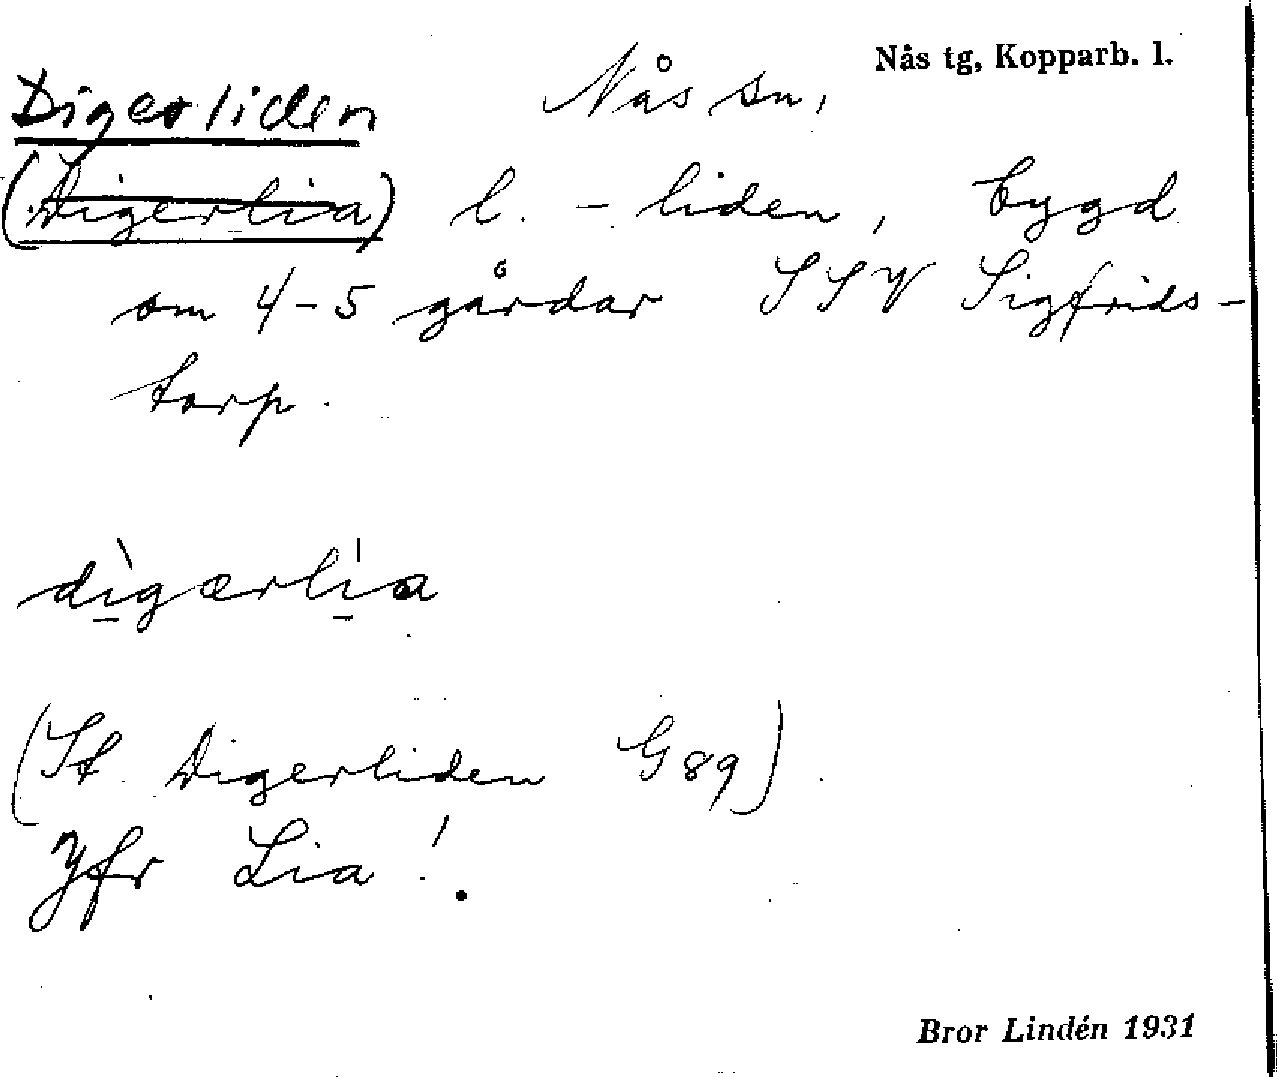 Nås tg, Kopparb. l.
Digerliden Nås sn,
(Digerlia) l. -liden, bygd
om 4-5 gårdar SSV Sigfrids-
torp.
dìgærlía
(St. Digerliden G 89)
Jfr Lia!
Bror Lindén 1931